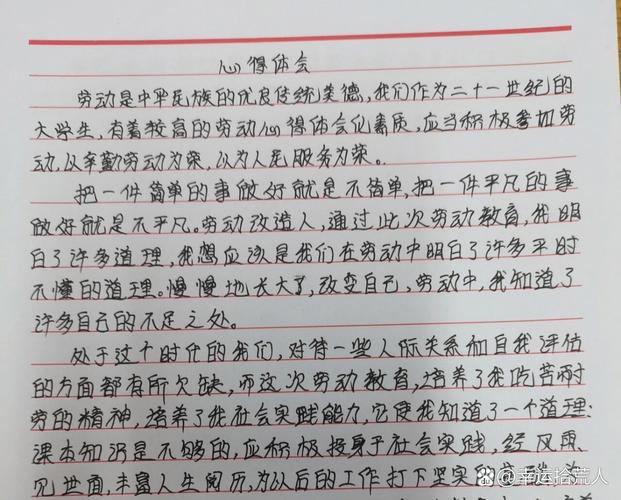 心得体会
劳动是中华民族的优良传统美德,我们作为二十一世纪的
大学生,有着较高的劳动心得体会化素质,应当积极参加劳
动,以辛勤劳动为荣,以为人民服务为荣。
把一件简单的事做好就是不简单,把一件平凡的事
做好就是不平凡。劳动改造人,通过此次劳动教育,我明
白了许多道理,我想应该是我们在劳动中明白了许多平时
不懂的道理。慢慢地长大了,改变自己,劳动中,我知道了
许多自己的不足之处。
处于这个时代的我们,对待一些人际关系和自我评估
的方面都有所欠缺,而这次劳动教育,培养了我吃苦耐
劳的精神,培养了我社会实践能力,它使我知道了一个道理:
课本知识是不够的,应积极投身于社会实践,经风雨、
见世面,丰富人生阅历,为以后的工作打下坚实的
@幸运拾荒人